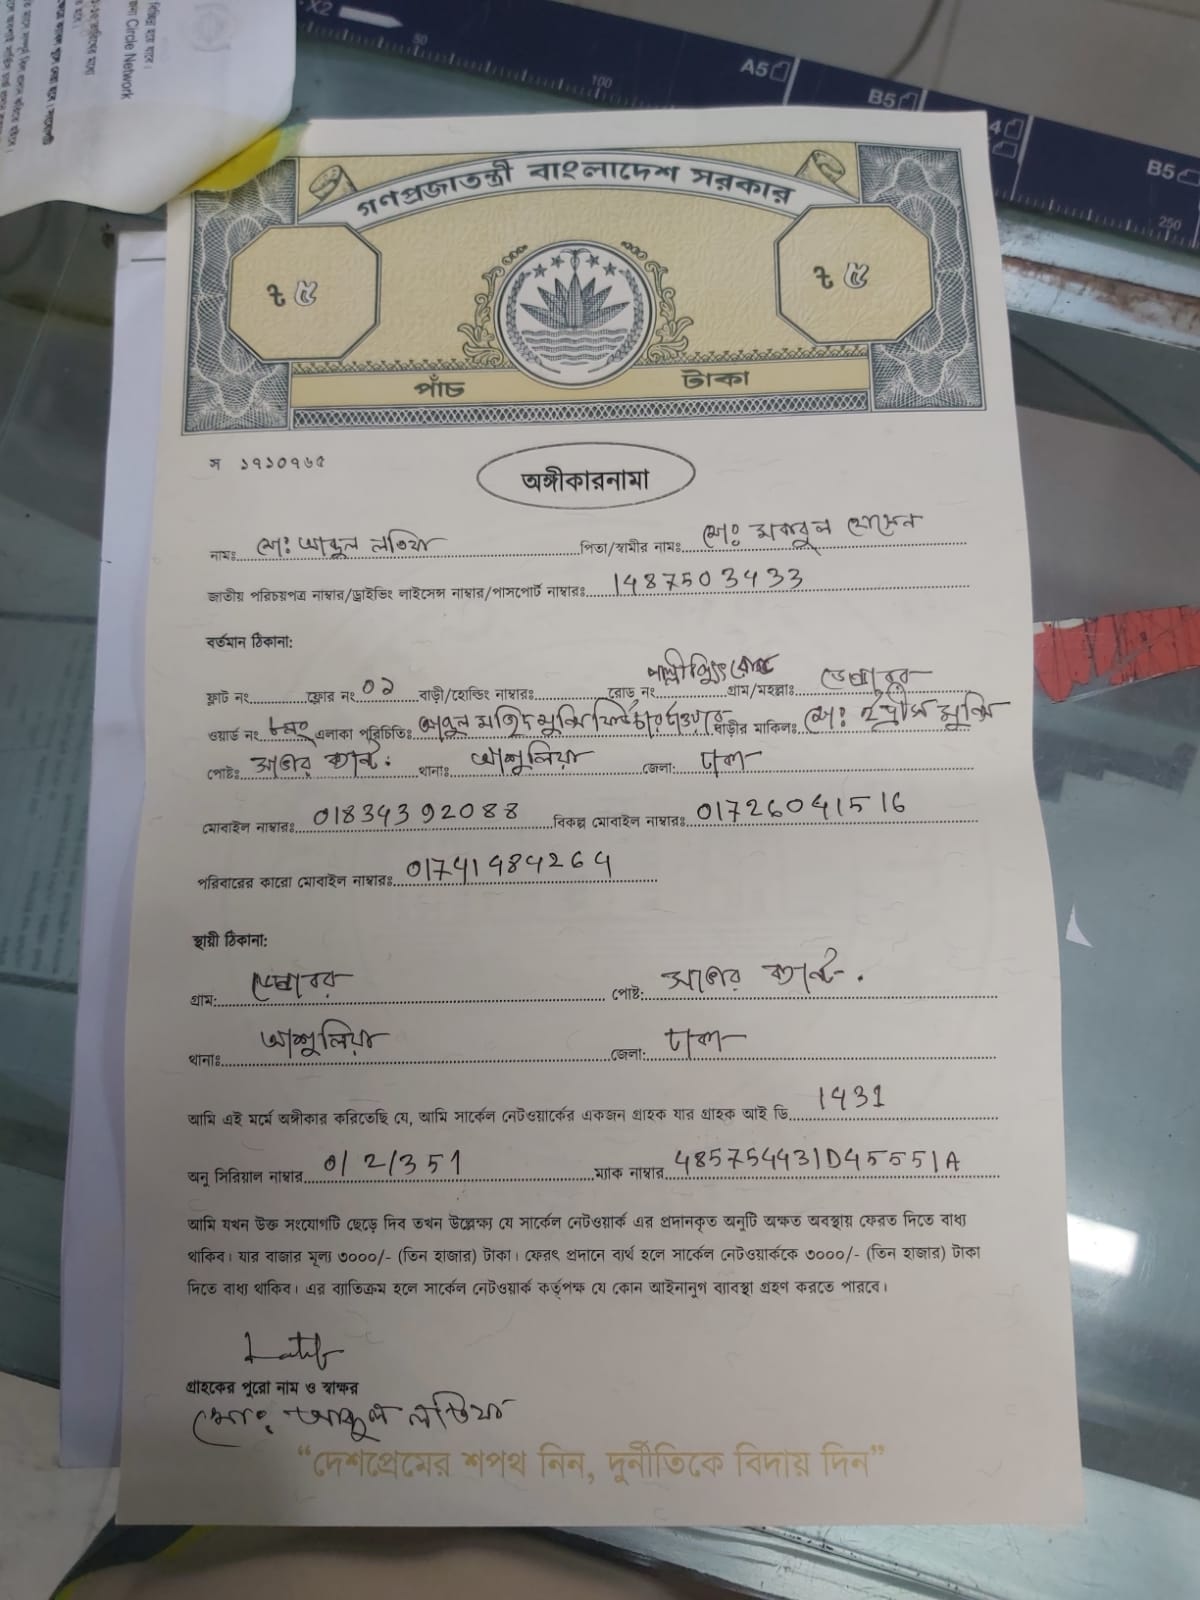 Circle Network
X2
50
100
A5
B5
4
B5
250
গণপ্রজাতন্ত্রী বাংলাদেশ সরকার
৳ ৫
৳ ৫
পাঁচ টাকা
স ১৭১০৭৬৫
অঙ্গীকারনামা
নামঃ মোঃ আব্দুল লতিফ পিতা/স্বামীর নামঃ মোঃ মকবুল হোসেন
জাতীয় পরিচয়পত্র নাম্বার/ড্রাইভিং লাইসেন্স নাম্বার/পাসপোর্ট নাম্বারঃ 1487503433
বর্তমান ঠিকানা:
ফ্লাট নং ফ্লোর নং ০১ বাড়ী/হোল্ডিং নাম্বারঃ রোড নং পল্লীবিদ্যুৎ রোড গ্রাম/মহল্লাঃ ডেন্ডাবর
ওয়ার্ড নং এলাকা পরিচিতিঃ আব্দুল মজিদ মুন্সি বাড়ীর মালিকঃ মোঃ ইদ্রীস মুন্সি
পোষ্টঃ সাভার ক্যান্ট: থানাঃ আশুলিয়া জেলা: ঢাকা
মোবাইল নাম্বারঃ 01834392088 বিকল্প মোবাইল নাম্বারঃ 01726041516
পরিবারের কারো মোবাইল নাম্বারঃ 01741484264
স্থায়ী ঠিকানা:
গ্রাম: ডেন্ডাবর পোষ্ট: সাভার ক্যান্ট.
থানাঃ আশুলিয়া জেলা: ঢাকা
আমি এই মর্মে অঙ্গীকার করিতেছি যে, আমি সার্কেল নেটওয়ার্কের একজন গ্রাহক যার গ্রাহক আই ডি 1431
অনু সিরিয়াল নাম্বার 0/2/351 ম্যাক নাম্বার 485754431D45551A
আমি যখন উক্ত সংযোগটি ছেড়ে দিব তখন উল্লেক্ষ্য যে সার্কেল নেটওয়ার্ক এর প্রদানকৃত অনুটি অক্ষত অবস্থায় ফেরত দিতে বাধ্য
থাকিব। যার বাজার মূল্য ৩০০০/- (তিন হাজার) টাকা। ফেরৎ প্রদানে ব্যর্থ হলে সার্কেল নেটওয়ার্ককে ৩০০০/- (তিন হাজার) টাকা
দিতে বাধ্য থাকিব। এর ব্যাতিক্রম হলে সার্কেল নেটওয়ার্ক কর্তৃপক্ষ যে কোন আইনানুগ ব্যাবস্থা গ্রহণ করতে পারবে।
Latif
গ্রাহকের পুরো নাম ও স্বাক্ষর
মোঃ আব্দুল লতিফ
“দেশপ্রেমের শপথ নিন, দুর্নীতিকে বিদায় দিন”